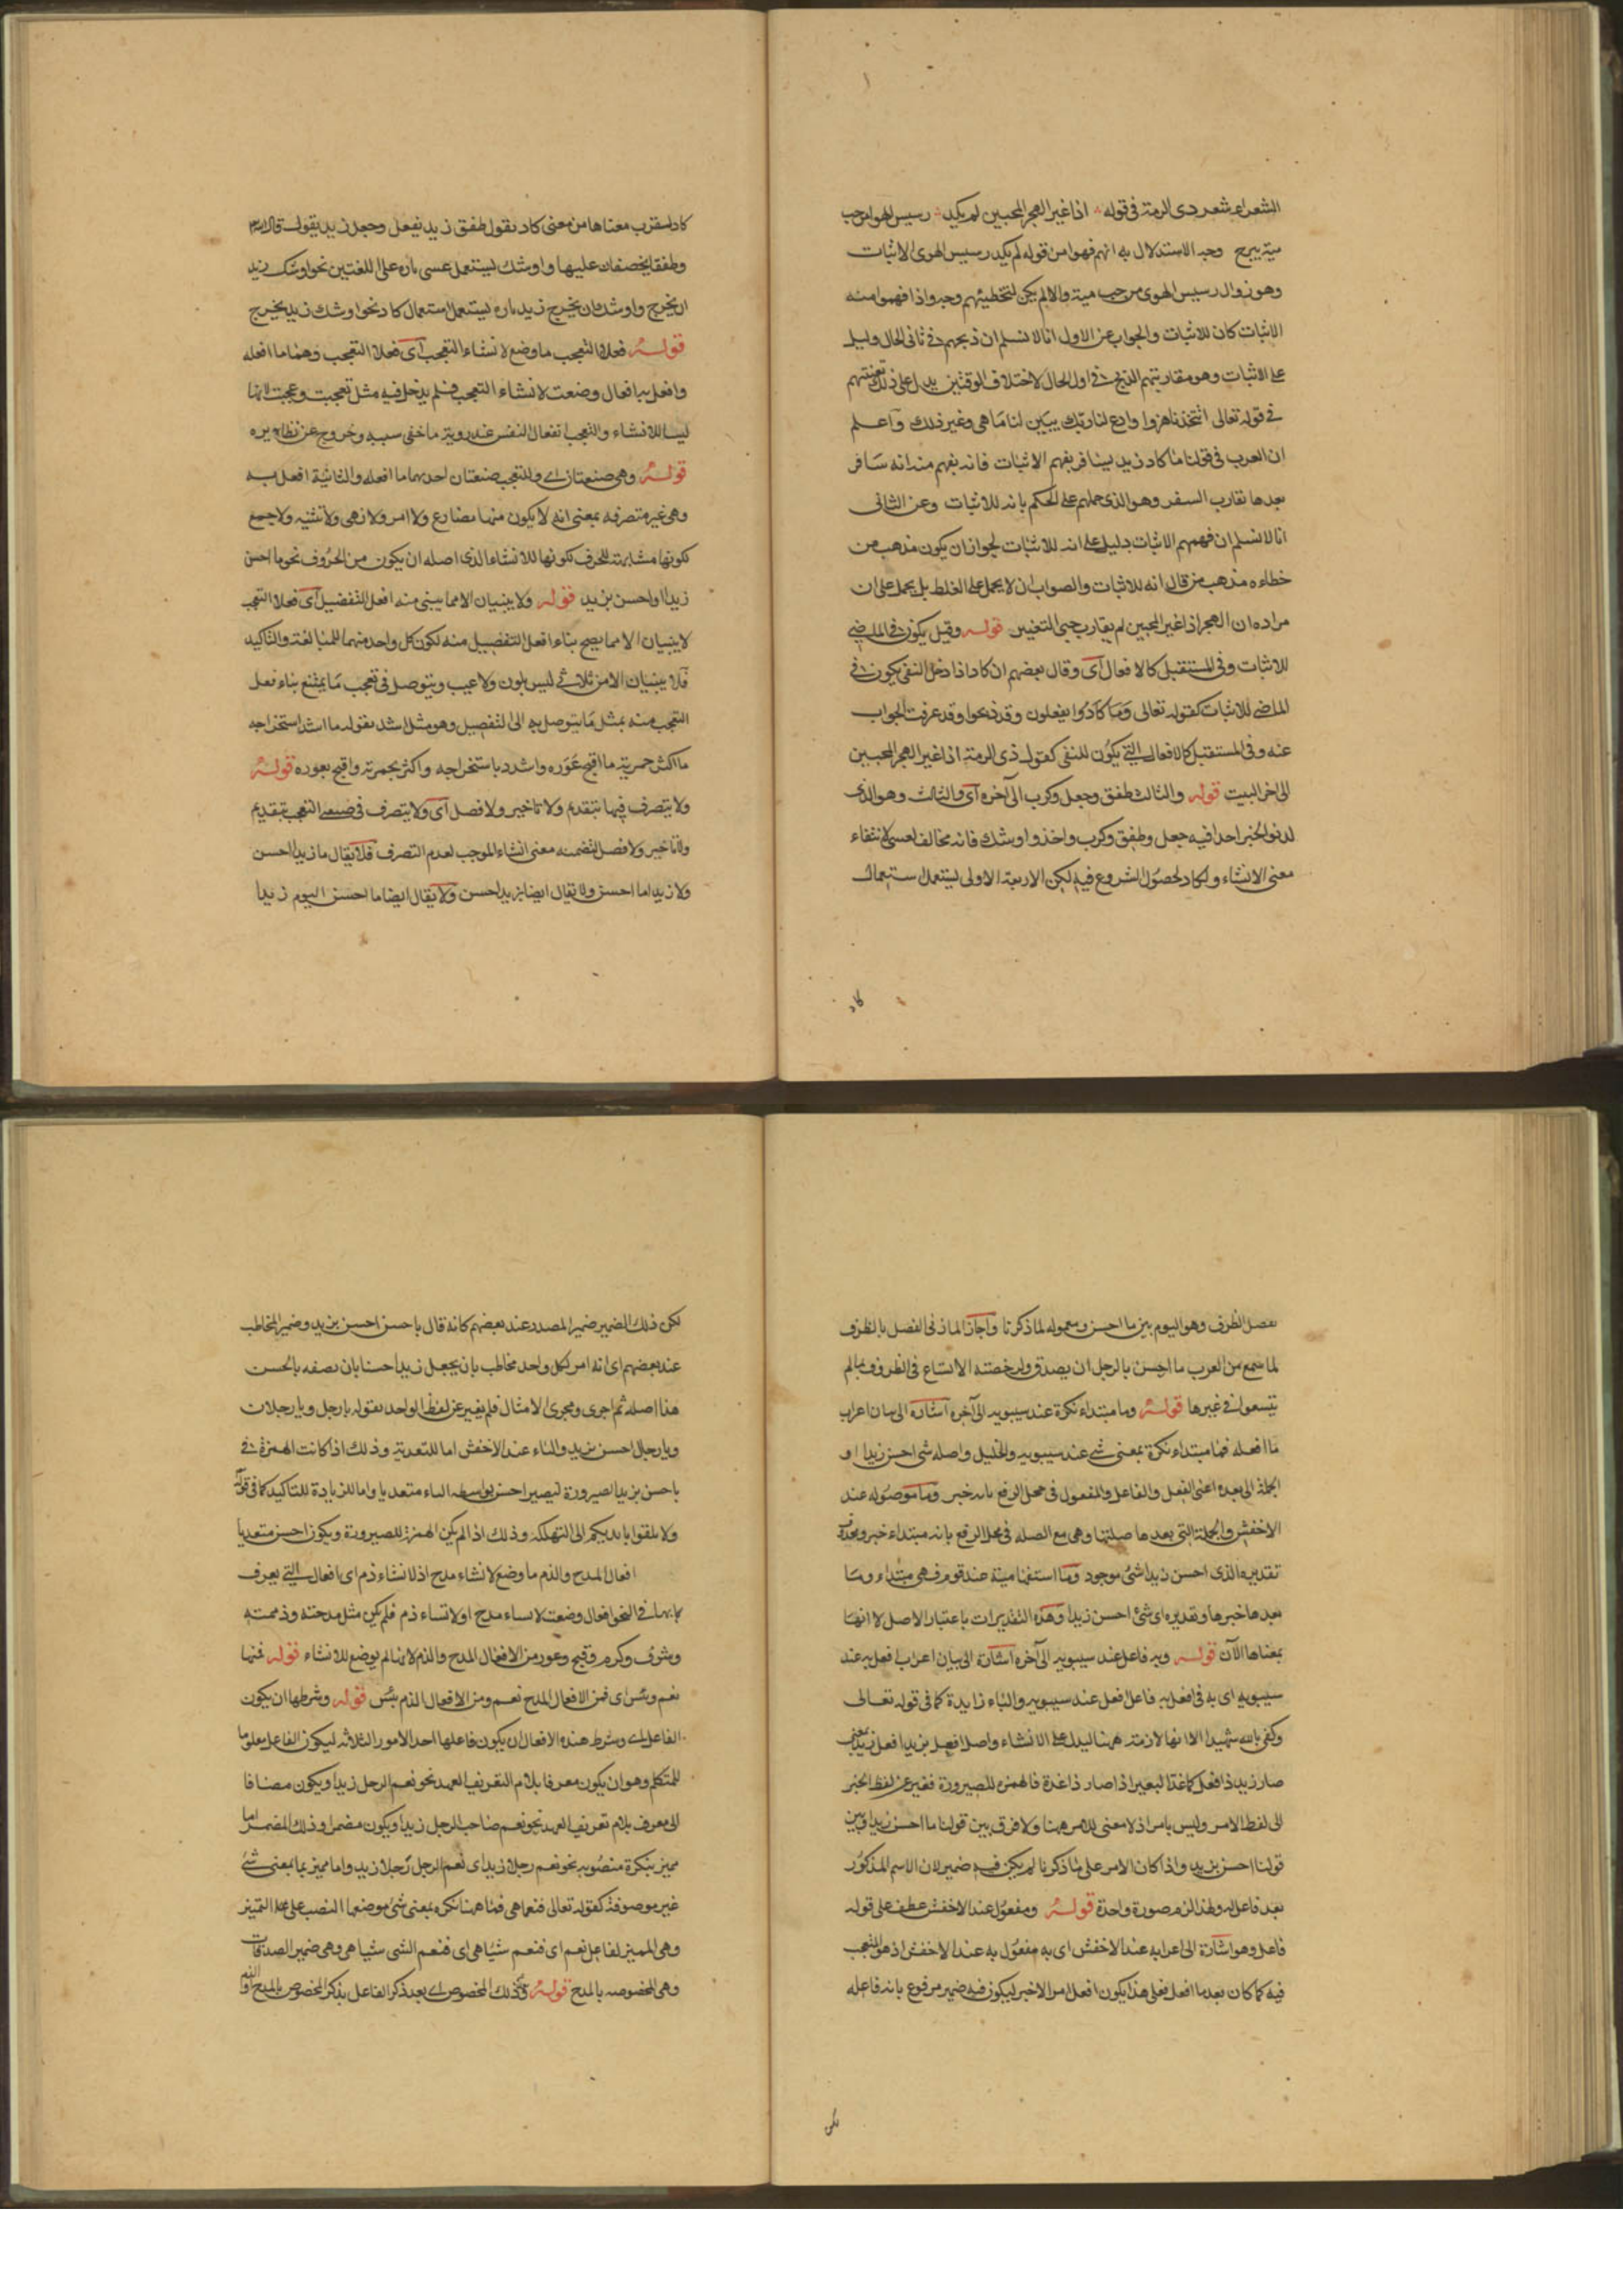 الشعراء شعر ذى الرمة فى قوله اذا غير الهجر المحبين لم يكد رسيس الهوى من حب
مية يبرح وجه الاستدلال به انهم فهموا من قوله لم يكد رسيس الهوى الاثبات
وهو زوال رسيس الهوى من حب مية والا لم يكن لتخطيئهم وجه واذا فهموا منه
الاثبات كان للاثبات والجواب عن الاول انا لا نسلم ان ذبحهم فى ثانى الحال دليل
على الاثبات وهو مقاربتهم الذبح فى اول الحال لاختلاف الوقتين يدل على ذلك تعنتهم
فى قوله تعالى اتتخذنا هزوا وادع لنا ربك يبين لنا ما هى وغير ذلك واعلم
ان العرب فى قولنا ما كاد زيد يسافر يفهم الاثبات فانه يفهم منه انه سافر
بعدها تقارب السفر وهو الذى حملهم على الحكم بانه للاثبات وعن الثانى
انا لا نسلم ان فهمهم الاثبات دليل على انه للاثبات لجواز ان يكون مذهب من
خطاءه مذهب من قال انه للاثبات والصواب ان لا يحمل على الغلط بل يحمل على ان
مراده ان الهجر اذا غير المحبين لم يقارب حبى التغيير قوله وقيل يكون فى الماضى
للاثبات وفى المستقبل كالافعال اى وقال بعضهم ان كاد اذا دخل النفى يكون فى
الماضى للاثبات كقوله تعالى وما كادوا يفعلون وقد ذبحوا وقد عرفت الجواب
عنه وفى المستقبل كالافعال التى يكون للنفى كقول ذى الرمة اذا غير الهجر المحبين
الى اخر البيت قوله والثالث طفق وجعل وكرب الى آخره اى والثالث وهو الذى
لدنو الخبر اخذا فيه جعل وطفق وكرب واخذ واوشك فانه مخالف لعسى لانتفاء
معنى الانشاء ولكاد لحصول الشروع فيه لكن الاربعة الاولى يستعمل استعمال
كاد
كاد لتقرب معناها من معنى كاد تقول طفق زيد يفعل وجعل زيد يقول قال الله
وطفقا يخصفان عليها واوشك يستعمل عسى تارة على اللغتين نحو اوشك زيد
ان يخرج واوشك ان يخرج زيد تارة يستعمل استعمال كاد نحو اوشك زيد يخرج
قوله فعلا التعجب ما وضع لانشاء التعجب اى فعلا التعجب وهما ما افعله
وافعل به افعال وضعت لانشاء التعجب فلم يدخل فيه مثل تعجبت وعجبت لانها
ليسا للانشاء والتعجب انفعال النفس عند روية ما خفى سببه وخروج عن نظايره
قوله وهى صيغتان اى وللتعجب صيغتان احديهما ما افعله والثانية افعل به
وهى غير متصرفه بمعنى انه لا يكون منهما مضارع ولا امر ولا نهى ولا تثنيه ولا جمع
لكونها مشابهة للحرف لكونها للانشاء الذى اصله ان يكون من الحروف نحو ما احسن
زيدا واحسن بزيد قوله ولا يبنيان الا مما يبنى منه افعل التفضيل اى فعلا التعجب
لا يبنيان الا مما يصح بناء افعل التفضيل منه لكون كل واحد منهما للمبالغة والتاكيد
فلا يبنيان الا من ثلاثى ليس بلون ولا عيب ويتوصل فى تعجب ما يمتنع بناء فعل
التعجب منه بمثل ما يتوصل به الى التفضيل وهو مثل اشد بقوله ما اشد استخراجه
ما اكثر حمرته ما اقبح عوره واشدد باستخراجه واكثر بحمرته واقبح بعوره قوله
ولا يتصرف فيها بتقديم ولا تاخير ولا فصل اى ولا يتصرف فى صيغتى التعجب بتقديم
ولا تاخير ولا فصل لتضمنه معنى انشاء الموجب لعدم التصرف فلا يقال ما زيدا احسن
ولا زيدا ما احسن ولا يقال ايضا بزيد احسن ولا يقال ايضا ما احسن اليوم زيدا
بفصل الظرف وهو اليوم بين ما احسن ومعموله لما ذكرنا واجاز المازنى الفصل بالظرف
لما سمع من العرب ما احسن بالرجل ان يصدق ولرخصته الاتساع فى الظروف ما لم
يتسعوا فى غيرها قوله وما مبتداء نكرة عند سيبويه الى آخره اشارة الى بيان اعراب
ما افعله فما مبتداء نكرة بمعنى شى عند سيبويه والخليل واصله شى احسن زيدا و
الجملة التى بعده اعنى الفعل والفاعل والمفعول فى محل الرفع بانه خبر وما موصوله عند
الاخفش والجملة التى بعدها صلتها وهى مع الصله فى محل الرفع بانه مبتداء خبره محذوف
تقديره الذى احسن زيدا شئ موجود وما استفهامية عند قوم فهى مبتداء وما
بعدها خبرها وتقديره اى شئ احسن زيدا وهذه التقديرات باعتبار الاصل لا انها
بمعناها الآن قوله وبه فاعل عند سيبويه الى آخره اشارة الى بيان اعراب افعل به عند
سيبويه اى به فى افعل به فاعل افعل عند سيبويه والباء زايدة كما فى قوله تعالى
وكفى بالله شهيدا الا انها لازمته ههنا ليدل على الانشاء واصل افعل بزيد افعل زيد بمعنى
صار زيد ذا فعل كاغدّ البعير اذا صار ذا غدة فالهمزه للصيرورة فغير عن لفظ الخبر
الى لفظ الامر وليس بامر اذ لا معنى للامر ههنا ولا فرق بين قولنا ما احسن زيدا وبين
قولنا احسن بزيد واذا كان الامر على ما ذكرنا لم يكن فيه ضمير لان الاسم المذكور
بعده فاعل له ولهذا لزم صورة واحدة قوله ومفعول عند الاخفش عطف على قوله
فاعل وهو اشارة الى اعرابه عند الاخفش اى به مفعول به عند الاخفش اذ هو المتعجب
فيه كما كان بعد ما افعل فعلى هذا يكون افعل امر الاخبر ليكون فيه ضمير مرفوع بانه فاعله
لكن
لكن ذلك الضمير ضمير المصدر عند بعضهم كانه قال يا حسن احسن بزيد وضمير المخاطب
عند بعضهم اى انه امر لكل واحد مخاطب بان يجعل زيدا حسنا بان يصفه بالحسن
هذا اصله ثم اجرى ومجرى الامثال فلم يغير عن لفظ الواحد بقوله يا رجل ويا رجلان
ويا رجال احسن بزيد والباء عند الاخفش اما للتعدية وذلك اذا كانت الهمزة فى
يا حسن بزيد للصيرورة ليصير احسن بواسطه الباء متعديا واما للزيادة للتاكيد كما فى قوله
ولا تلقوا بايديكم الى التهلكة وذلك اذا لم يكن الهمزة للصيرورة ويكون احسن متعديا
افعال المدح والذم ما وضع لانشاء مدح اذ لانشاء ذم اى افعال التى يعرف
بابها فى النحو افعال وضعت لانشاء مدح او لانشاء ذم فلم يكن مثل مدحته وذممته
وشرف وكرم وقبح وعور من الافعال المدح والذم لانها لم يوضع للانشاء قوله فمنها
نعم وبئس اى فمن الافعال المدح نعم ومن الافعال الذم بئس قوله وشرطها ان يكون
الفاعل اى وشرط هذه الافعال ان يكون فاعلها احد الامور الثلاثه ليكون الفاعل معلوما
للمتكلم وهو ان يكون معرفا بلام التعريف العهد نحو نعم الرجل زيد او يكون مضافا
الى معرف بلام تعريف العهد نحو نعم صاحب الرجل زيد او يكون مضمرا وذلك المضمر اما
مميز بنكرة منصوبه نحو نعم رجلا زيد اى نعم الرجل رجلا زيد واما مميز بما بمعنى شئ
غير موصوفة كقوله تعالى فنعما هى فما ههنا نكره بمعنى شئ موضعها النصب على التميز
وهى المميز لفاعل نعم اى فنعم شيئا هى اى فنعم الشى شيئا هى وهى ضمير الصدقات
وهى المخصوصه بالمدح قوله وذلك المخصوص اى بعد ذكر الفاعل يذكر المخصوص بالمدح او الذم